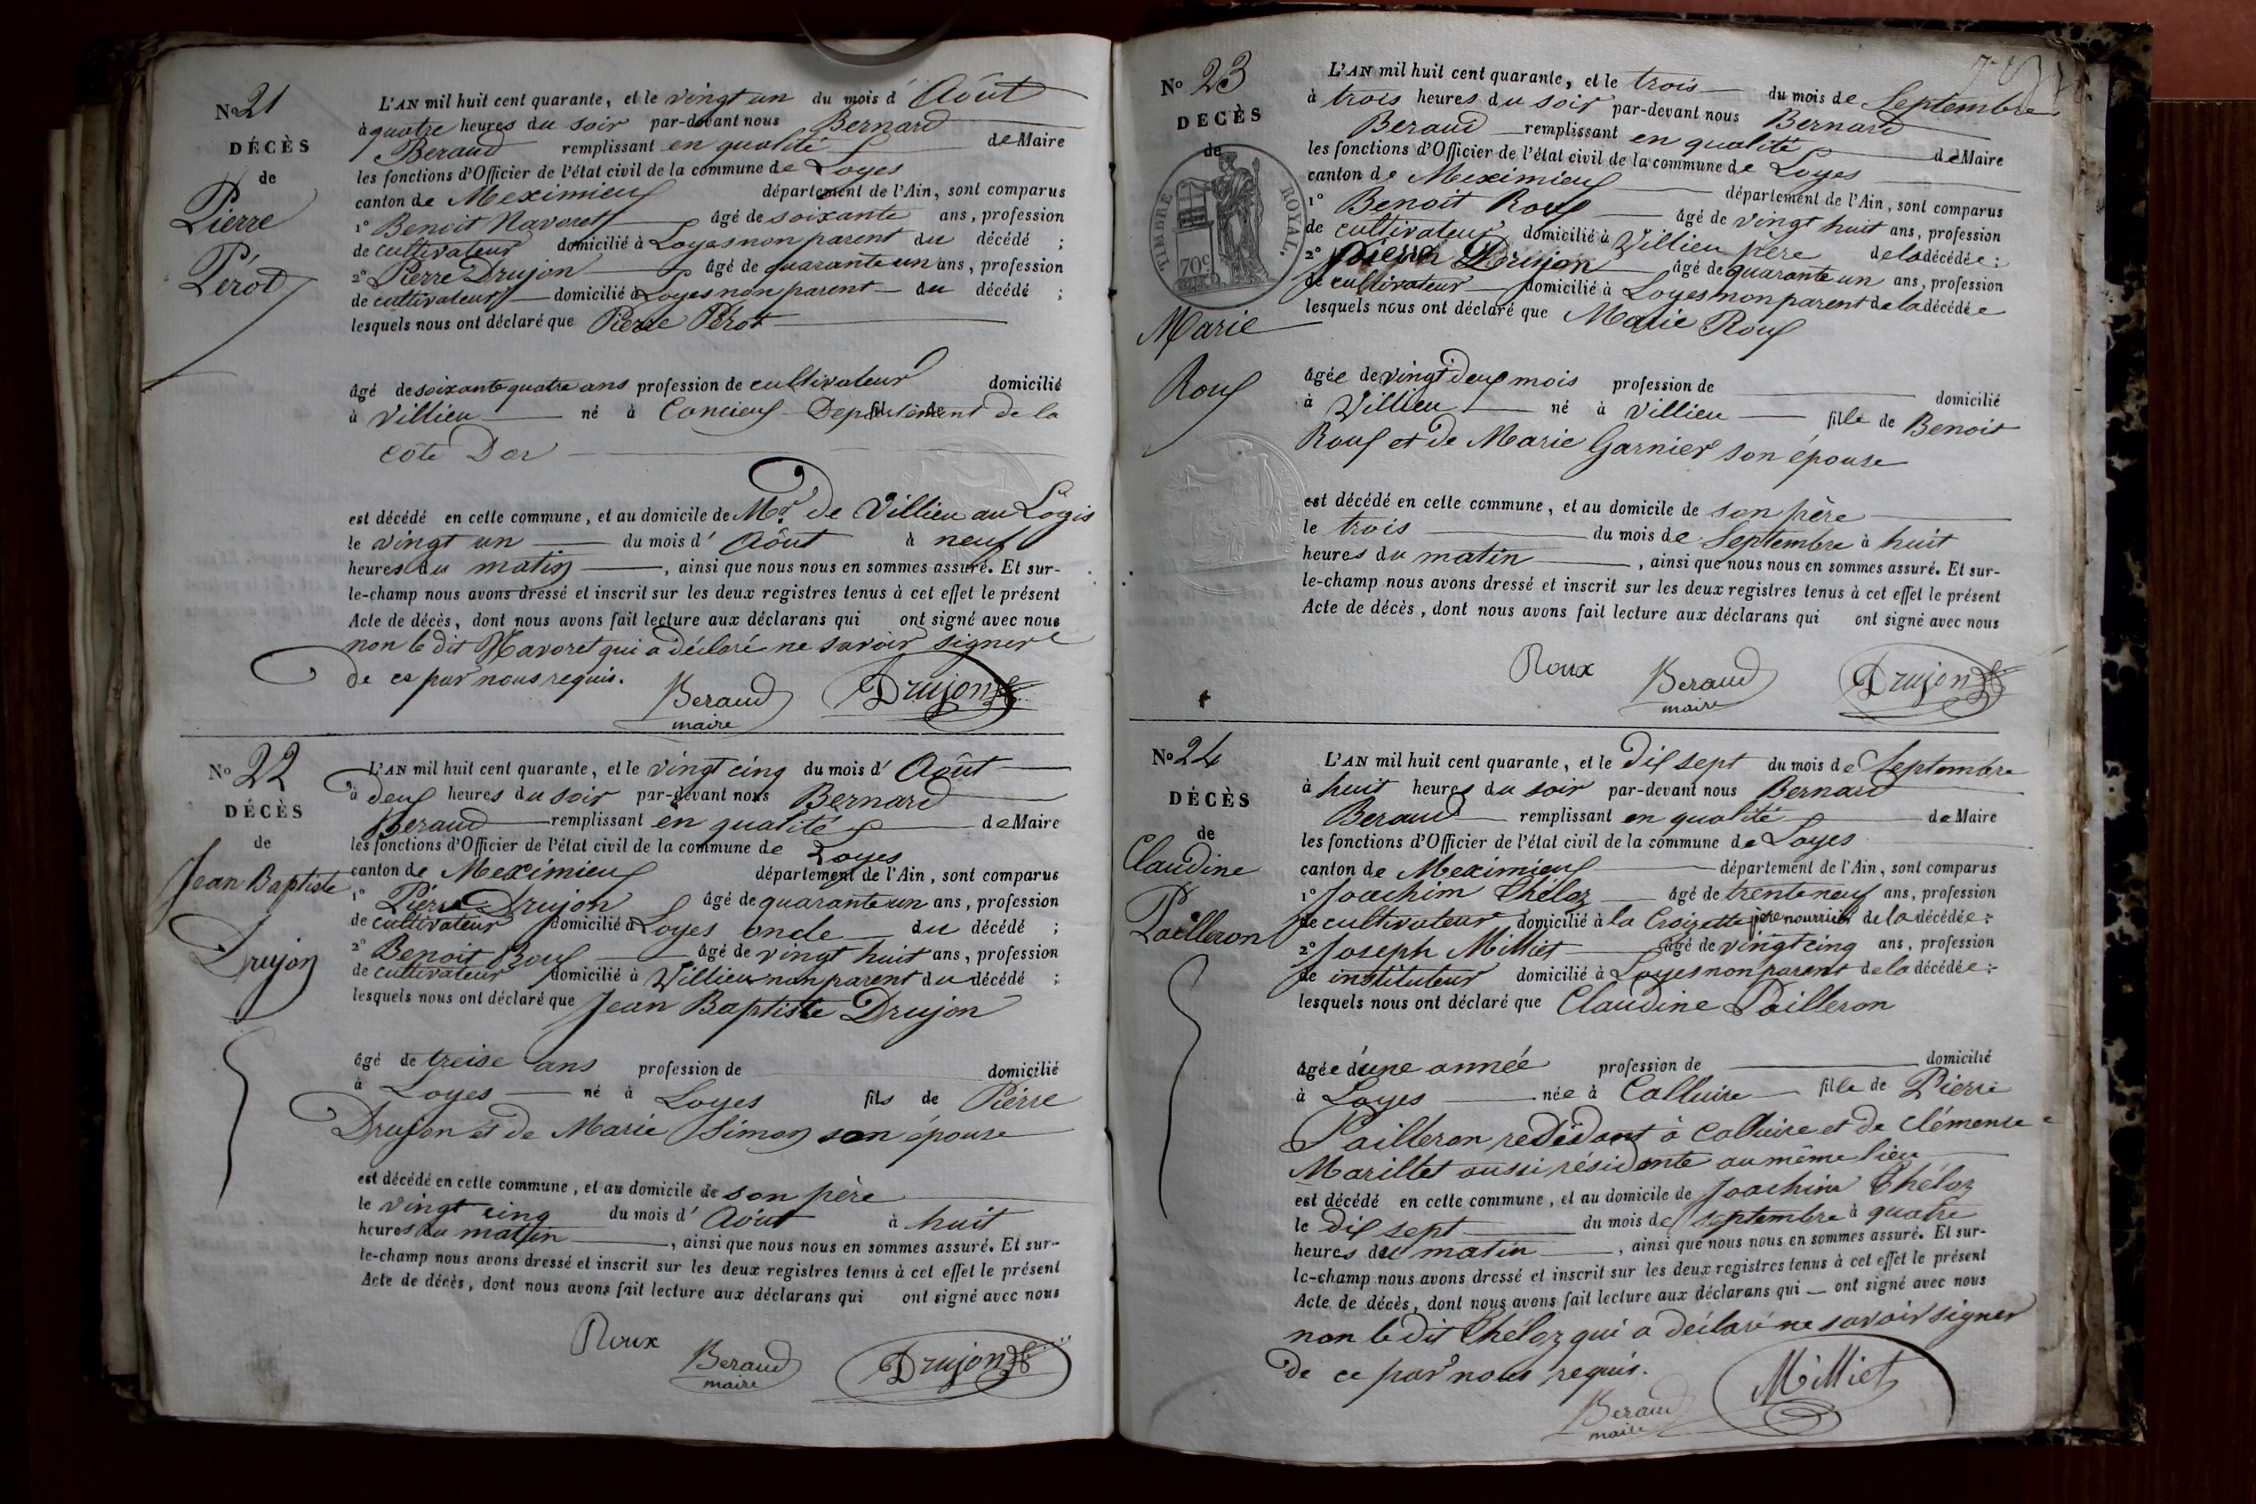 No 21
DÉCÈS
de
Pierre
Pérot
L'AN mil huit cent quarante, et le vingt un du mois d' Août
à quatre heures du soir par-devant nous Bernard
Beraud remplissant en qualité de Maire
les fonctions d'Officier de l'état civil de la commune de Loyes
canton de Meximieux département de l'Ain, sont comparus
1° Benoit Navoret âgé de soixante ans, profession
de cultivateur domicilié à Loyes non parent du décédé ;
2° Pierre Drujon âgé de quarante un ans, profession
de cultivateur domicilié à Loyes non parent du décédé ;
lesquels nous ont déclaré que Pierre Pérot
âgé de soixante quatre ans profession de cultivateur domicilié
à Villieu né à Concieux Département de la
côte Dor
est décédé en cette commune, et au domicile de Mr de Villieu au Logis
le vingt un du mois d' Août à neuf
heures du matin, ainsi que nous nous en sommes assuré. Et sur-
le-champ nous avons dressé et inscrit sur les deux registres tenus à cet effet le présent
Acte de décès, dont nous avons fait lecture aux déclarans qui ont signé avec nous
non le dit Navoret qui a déclaré ne savoir signer
de ce par nous requis.
Beraud Drujon
maire
No 22
DÉCÈS
de
Jean Baptiste
Drujon
L'AN mil huit cent quarante, et le vingt cinq du mois d' Août
à deux heures du soir par-devant nous Bernard
Beraud remplissant en qualité de Maire
les fonctions d'Officier de l'état civil de la commune de Loyes
canton de Meximieux département de l'Ain, sont comparus
1° Pierre Drujon âgé de quarante un ans, profession
de cultivateur domicilié à Loyes oncle du décédé ;
2° Benoit Roux âgé de vingt huit ans, profession
de cultivateur domicilié à Villieu non parent du décédé ;
lesquels nous ont déclaré que Jean Baptiste Drujon
âgé de treise ans profession de domicilié
à Loyes né à Loyes fils de Pierre
Drujon et de Marie Simon son épouse
est décédé en cette commune, et au domicile de son père
le vingt cinq du mois d' Août à huit
heures du matin, ainsi que nous nous en sommes assuré. Et sur-
le-champ nous avons dressé et inscrit sur les deux registres tenus à cet effet le présent
Acte de décès, dont nous avons fait lecture aux déclarans qui ont signé avec nous
Roux Beraud Drujon
maire
No 23
DÉCÈS
de
TIMBRE ROYAL.
70c
Marie
Roux
L'AN mil huit cent quarante, et le trois du mois de Septembre
à trois heures du soir par-devant nous Bernard
Beraud remplissant en qualité de Maire
les fonctions d'Officier de l'état civil de la commune de Loyes
canton de Meximieux département de l'Ain, sont comparus
1° Benoit Roux âgé de vingt huit ans, profession
de cultivateur domicilié à Villieu père de la décédée ;
2° pierre Drujon âgé de quarante un ans, profession
de cultivateur domicilié à Loyes non parent de la décédée
lesquels nous ont déclaré que Marie Roux
âgée de vingt deux mois profession de domicilié
à Villieu né à Villieu fille de Benoit
Roux et de Marie Garnier son épouse
est décédé en cette commune, et au domicile de son père
le trois du mois de Septembre à huit
heures du matin, ainsi que nous nous en sommes assuré. Et sur-
le-champ nous avons dressé et inscrit sur les deux registres tenus à cet effet le présent
Acte de décès, dont nous avons fait lecture aux déclarans qui ont signé avec nous
Roux Beraud Drujon
maire
No 24
DÉCÈS
de
Claudine
Pailleron
L'AN mil huit cent quarante, et le dix sept du mois de Septembre
à huit heures du soir par-devant nous Bernard
Beraud remplissant en qualité de Maire
les fonctions d'Officier de l'état civil de la commune de Loyes
canton de Meximieux département de l'Ain, sont comparus
1° Joachim Théloz âgé de trente neuf ans, profession
de cultivateur domicilié à la Croizette père nourricier de la décédée ;
2° Joseph Milliet âgé de vingt cinq ans, profession
de instituteur domicilié à Loyes non parent de la décédée ;
lesquels nous ont déclaré que Claudine Pailleron
âgée d'une année profession de domicilié
à Loyes née à Calluire fille de Pierre
Pailleron redédant à Calluire et de Clémence
Marillet aussi résidente au même lieu
est décédé en cette commune, et au domicile de Joachim Théloz
le dix sept du mois de septembre à quatre
heures du matin, ainsi que nous nous en sommes assuré. Et sur-
le-champ nous avons dressé et inscrit sur les deux registres tenus à cet effet le présent
Acte de décès, dont nous avons fait lecture aux déclarans qui ont signé avec nous
non le dit Théloz qui a déclaré ne savoir signer
de ce par nous requis.
Beraud Milliet
maire